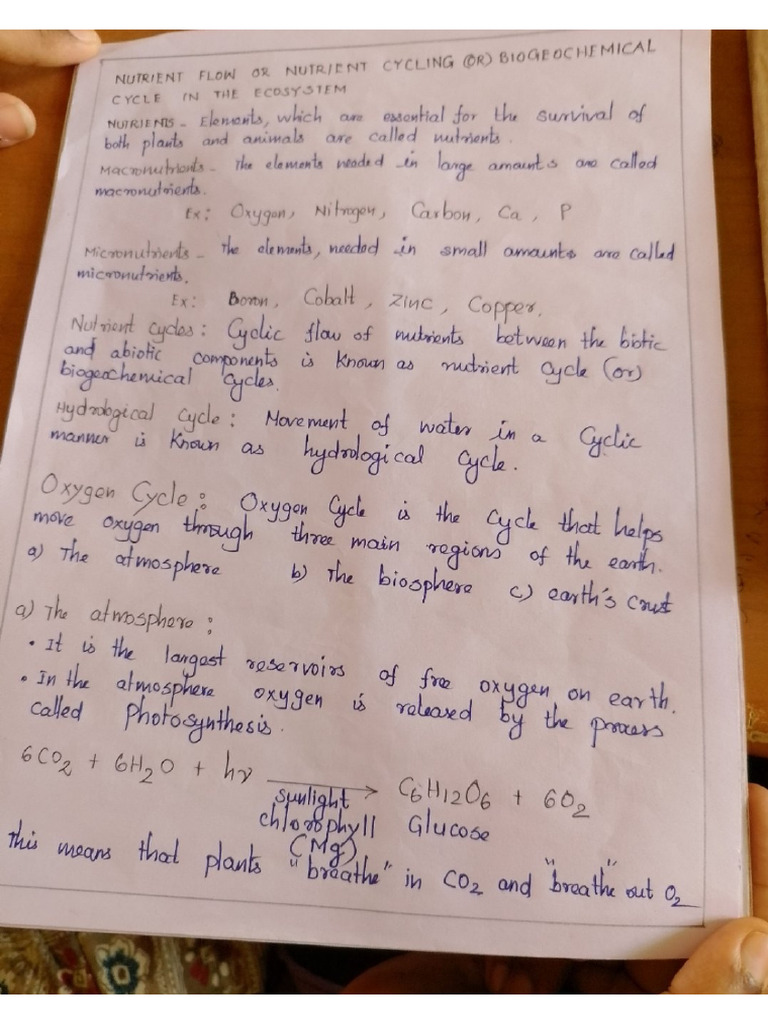 NUTRIENT FLOW OR NUTRIENT CYCLING (OR) BIOGEOCHEMICAL
CYCLE IN THE ECOSYSTEM
NUTRIENTS - Elements, which are essential for the survival of
both plants and animals are called nutrients.
Macronutrients - The elements needed in large amounts are called
macronutrients.
Ex: Oxygen, Nitrogen, Carbon, Ca, P
Micronutrients - The elements, needed in small amounts are called
micronutrients.
Ex: Boron, Cobalt, Zinc, Copper.
Nutrient cycles: Cyclic flow of nutrients between the biotic
and abiotic components is known as nutrient cycle (or)
biogeochemical cycles.
Hydrological cycle: Movement of water in a cyclic
manner is known as hydrological cycle.
Oxygen Cycle: Oxygen Cycle is the cycle that helps
move oxygen through three main regions of the earth.
a) The atmosphere b) The biosphere c) earth's crust
a) The atmosphere:
• It is the largest reservoirs of free oxygen on earth.
• In the atmosphere oxygen is released by the process
called Photosynthesis.
6CO2 + 6H2O + hν ⟶ C6H12O6 + 6O2
sunlight
chlorophyll Glucose
(Mg)
This means that plants "breathe" in CO2 and "breathe" out O2